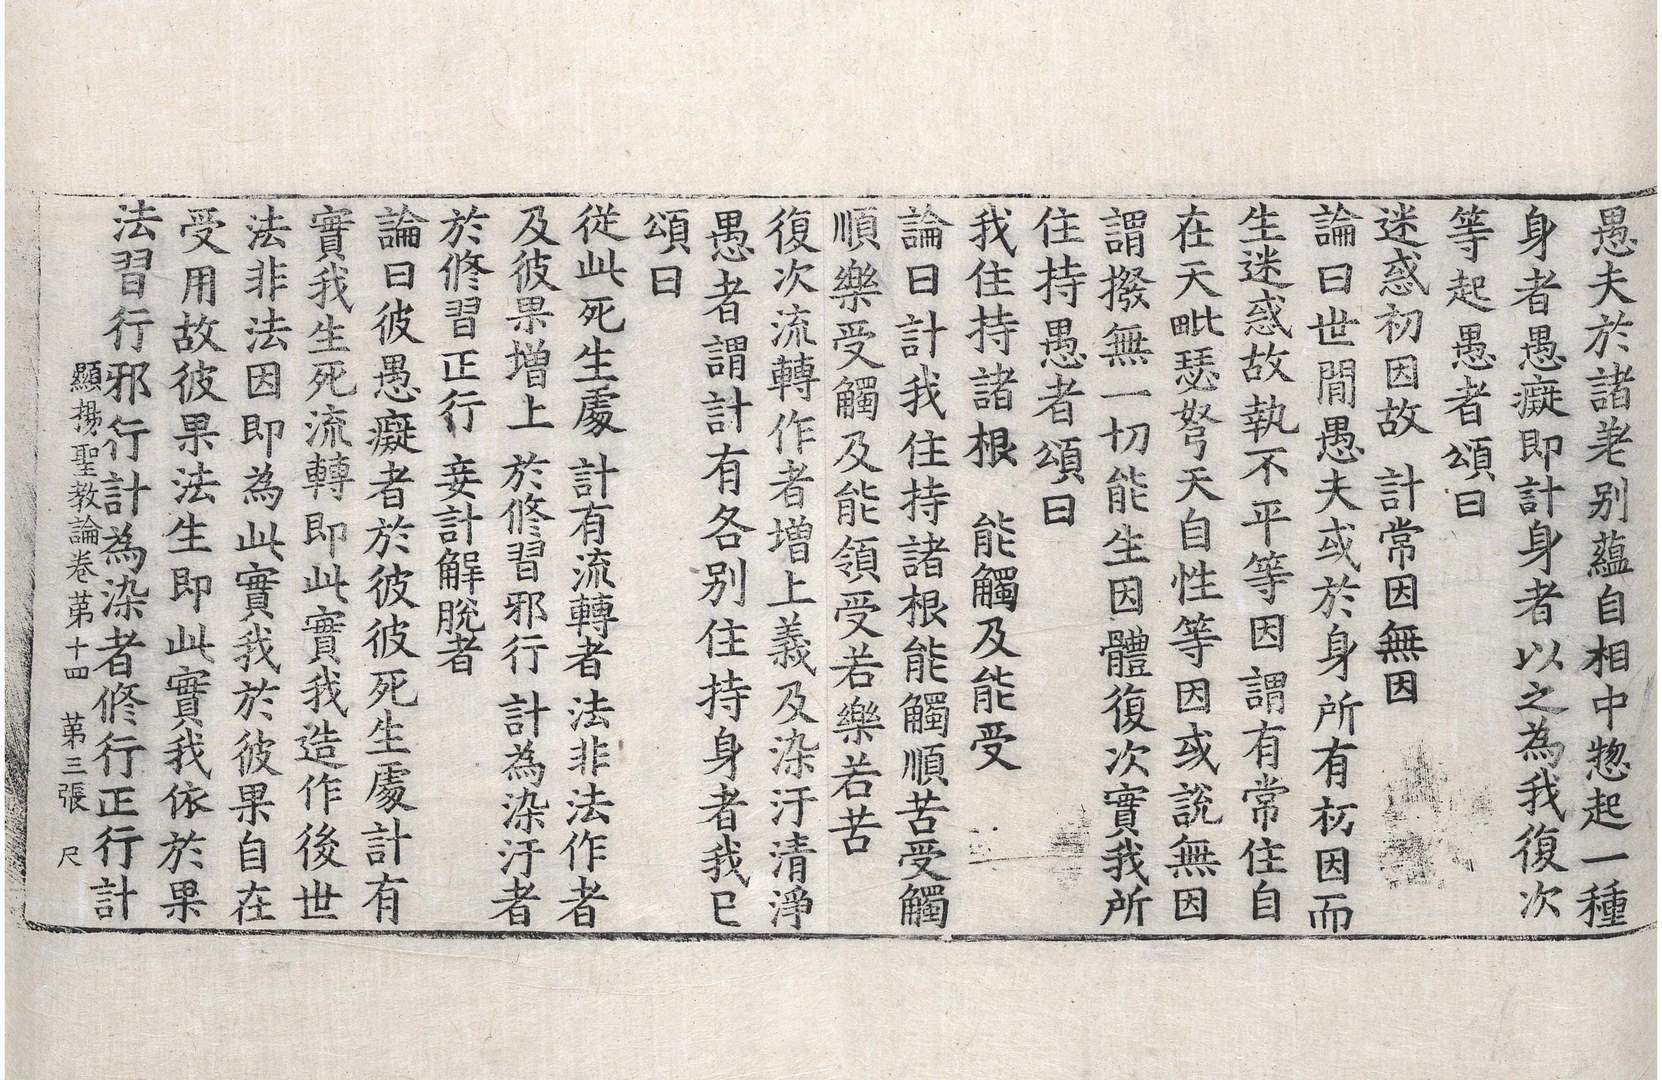 愚夫於諸差别蘊自相中揔起一種
身者愚癡即計身者以之為我復次
等起愚者頌曰
迷惑初因故　計常因無因
論曰世間愚夫或於身所有初因而
生迷惑故執不平等因謂有常住自
在天毗瑟弩天自性等因或說無因
謂撥無一切能生因體復次實我所
住持愚者頌曰
我住持諸根　能觸及能受
論曰計我住持諸根能觸順苦受觸
順樂受觸及能領受若樂若苦
復次流轉作者增上義及染汙清淨
愚者謂計有各别住持身者我已
頌曰
從此死生處　計有流轉者　法非法作者
及彼果增上　於修習邪行　計為染汙者
於修習正行　妄計解脫者
論曰彼愚癡者於彼彼死生處計有
實我生死流轉即此實我造作後世
法非法因即為此實我於彼果自在
受用故彼果法生即此實我依於果
法習行邪行計為染者修行正行計
顯揚聖教論卷第十四　第三張　尺